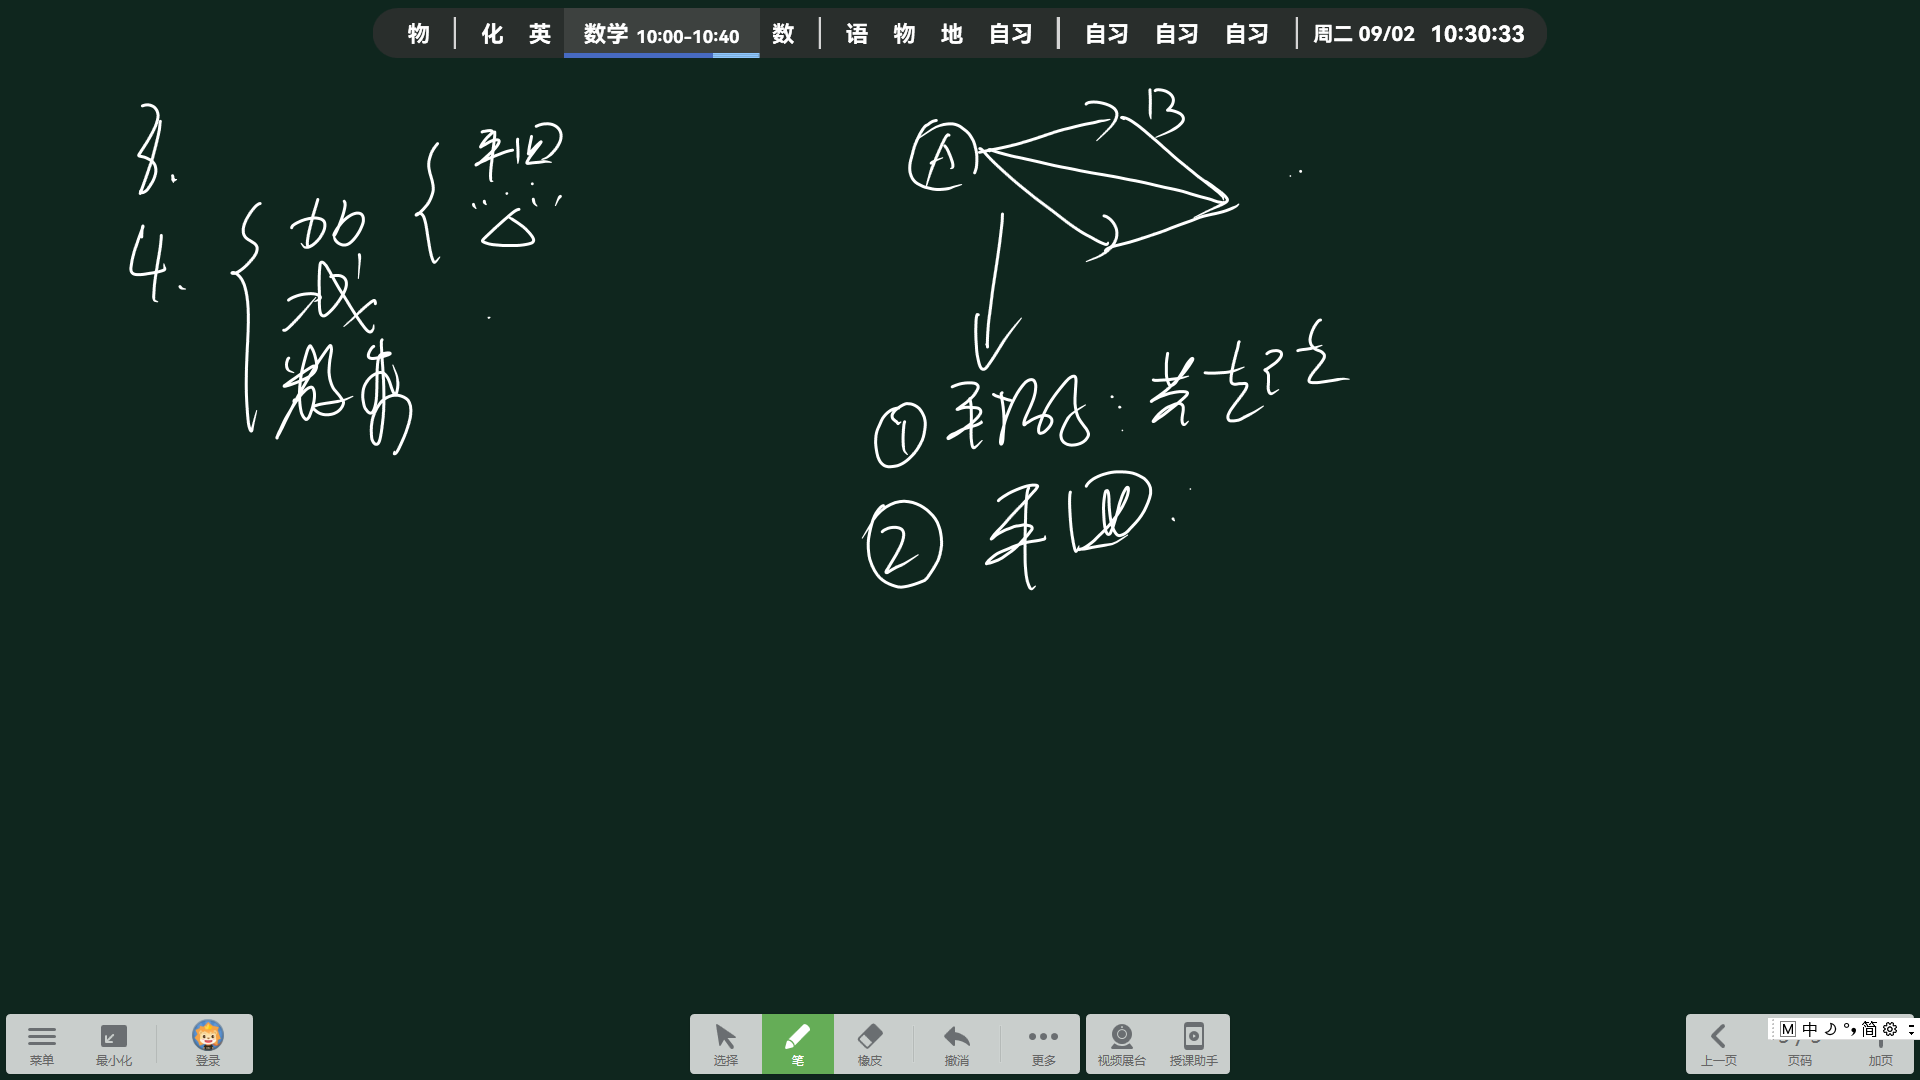 物 | 化 英 数学 10:00-10:40 数 | 语 物 地 自习 | 自习 自习 自习 | 周二 09/02 10:30:33
3.
4.
加
减
数乘
平四
△
A
B
① 平移：共起点
② 平四
菜单
最小化
登录
选择
笔
橡皮
撤消
更多
视频展台
授课助手
上一页
页码
加页
M 中 简